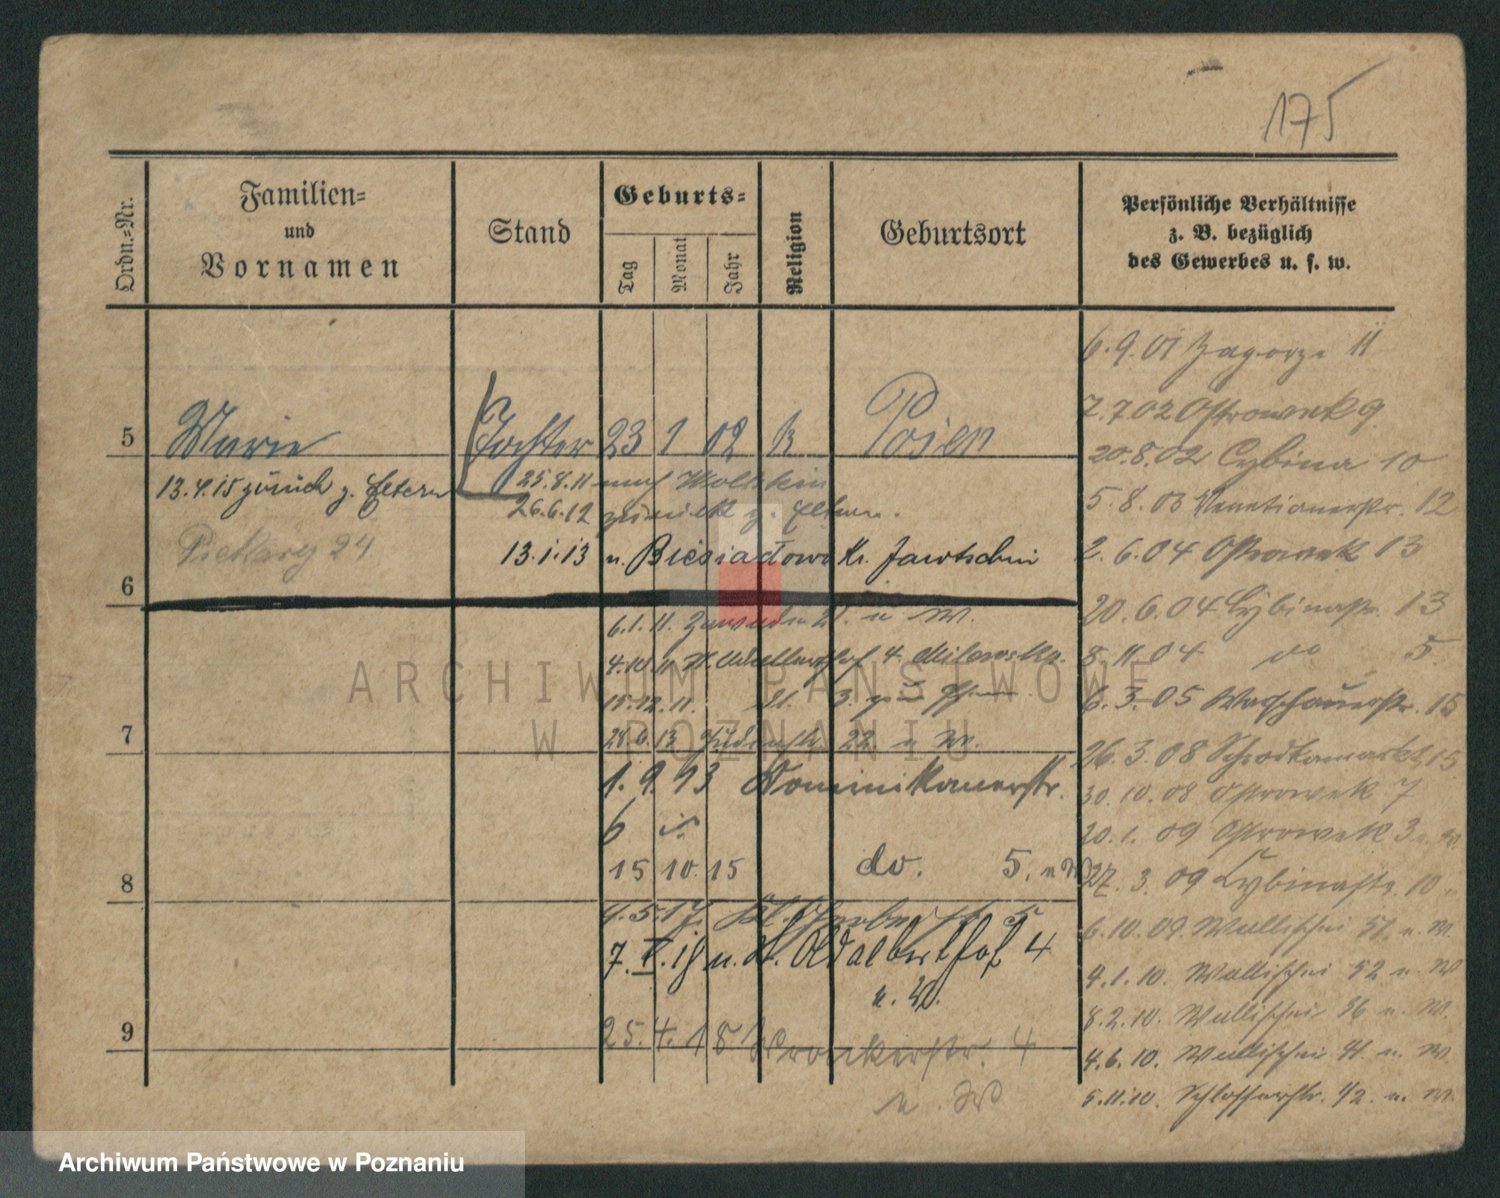 175
Ordn.-Nr.
Familien-
und
Vornamen
Stand
Geburts-
Tag
Monat
Jahr
Religion
Geburtsort
Persönliche Verhältnisse
z. B. bezüglich
des Gewerbes u. s. w.
5 Marie Tochter 23 1 02 k Posen
13.4.15 zurück z. Eltern
25.8.11 nach
26.6.12 zurück z. Eltern.
Piekary 24
13.1.13 n. Biesiadowo Kr. Jarotschin
6
6.1.11. u. W.
4.10.11 4
15.12.11. 3.
7
28.6.13 Judenstr. 22 u. W.
1. 9. 13 Dominikanerstr.
6
15 10. 15 do. 5. u W
8
4.5.17.
7.V.18 u. St. Adalberthof 4
u. W.
9
25.4.18 Wronkerstr. 4
u. W
6.9.01 Zagorze 11
7.7.02 Ostrowek 9
20.8.02 Cybina 10
5.8.03 Venetianerstr. 12
2.6.04 Ostrowek 13
20.6.04 Cybinastr. 13
8.11.04 do 5
6.3.05 Warschauerstr. 15
26.3.08 Schrodkamarkt 15
30.10.08 Ostrowek 7
20.1.09 Ostrowek 3 u. W
27.3.09 Cybinastr. 10
6.10.09. Wallischei 51 u. W.
4.1.10. Wallischei 52 u. W
8.2.10. Wallischei 36 u. W.
4.6.10. Wallischei u. W
5.11.10. Schlosserstr. u. W.
ARCHIWUM PAŃSTWOWE
W POZNANIU
Archiwum Państwowe w Poznaniu